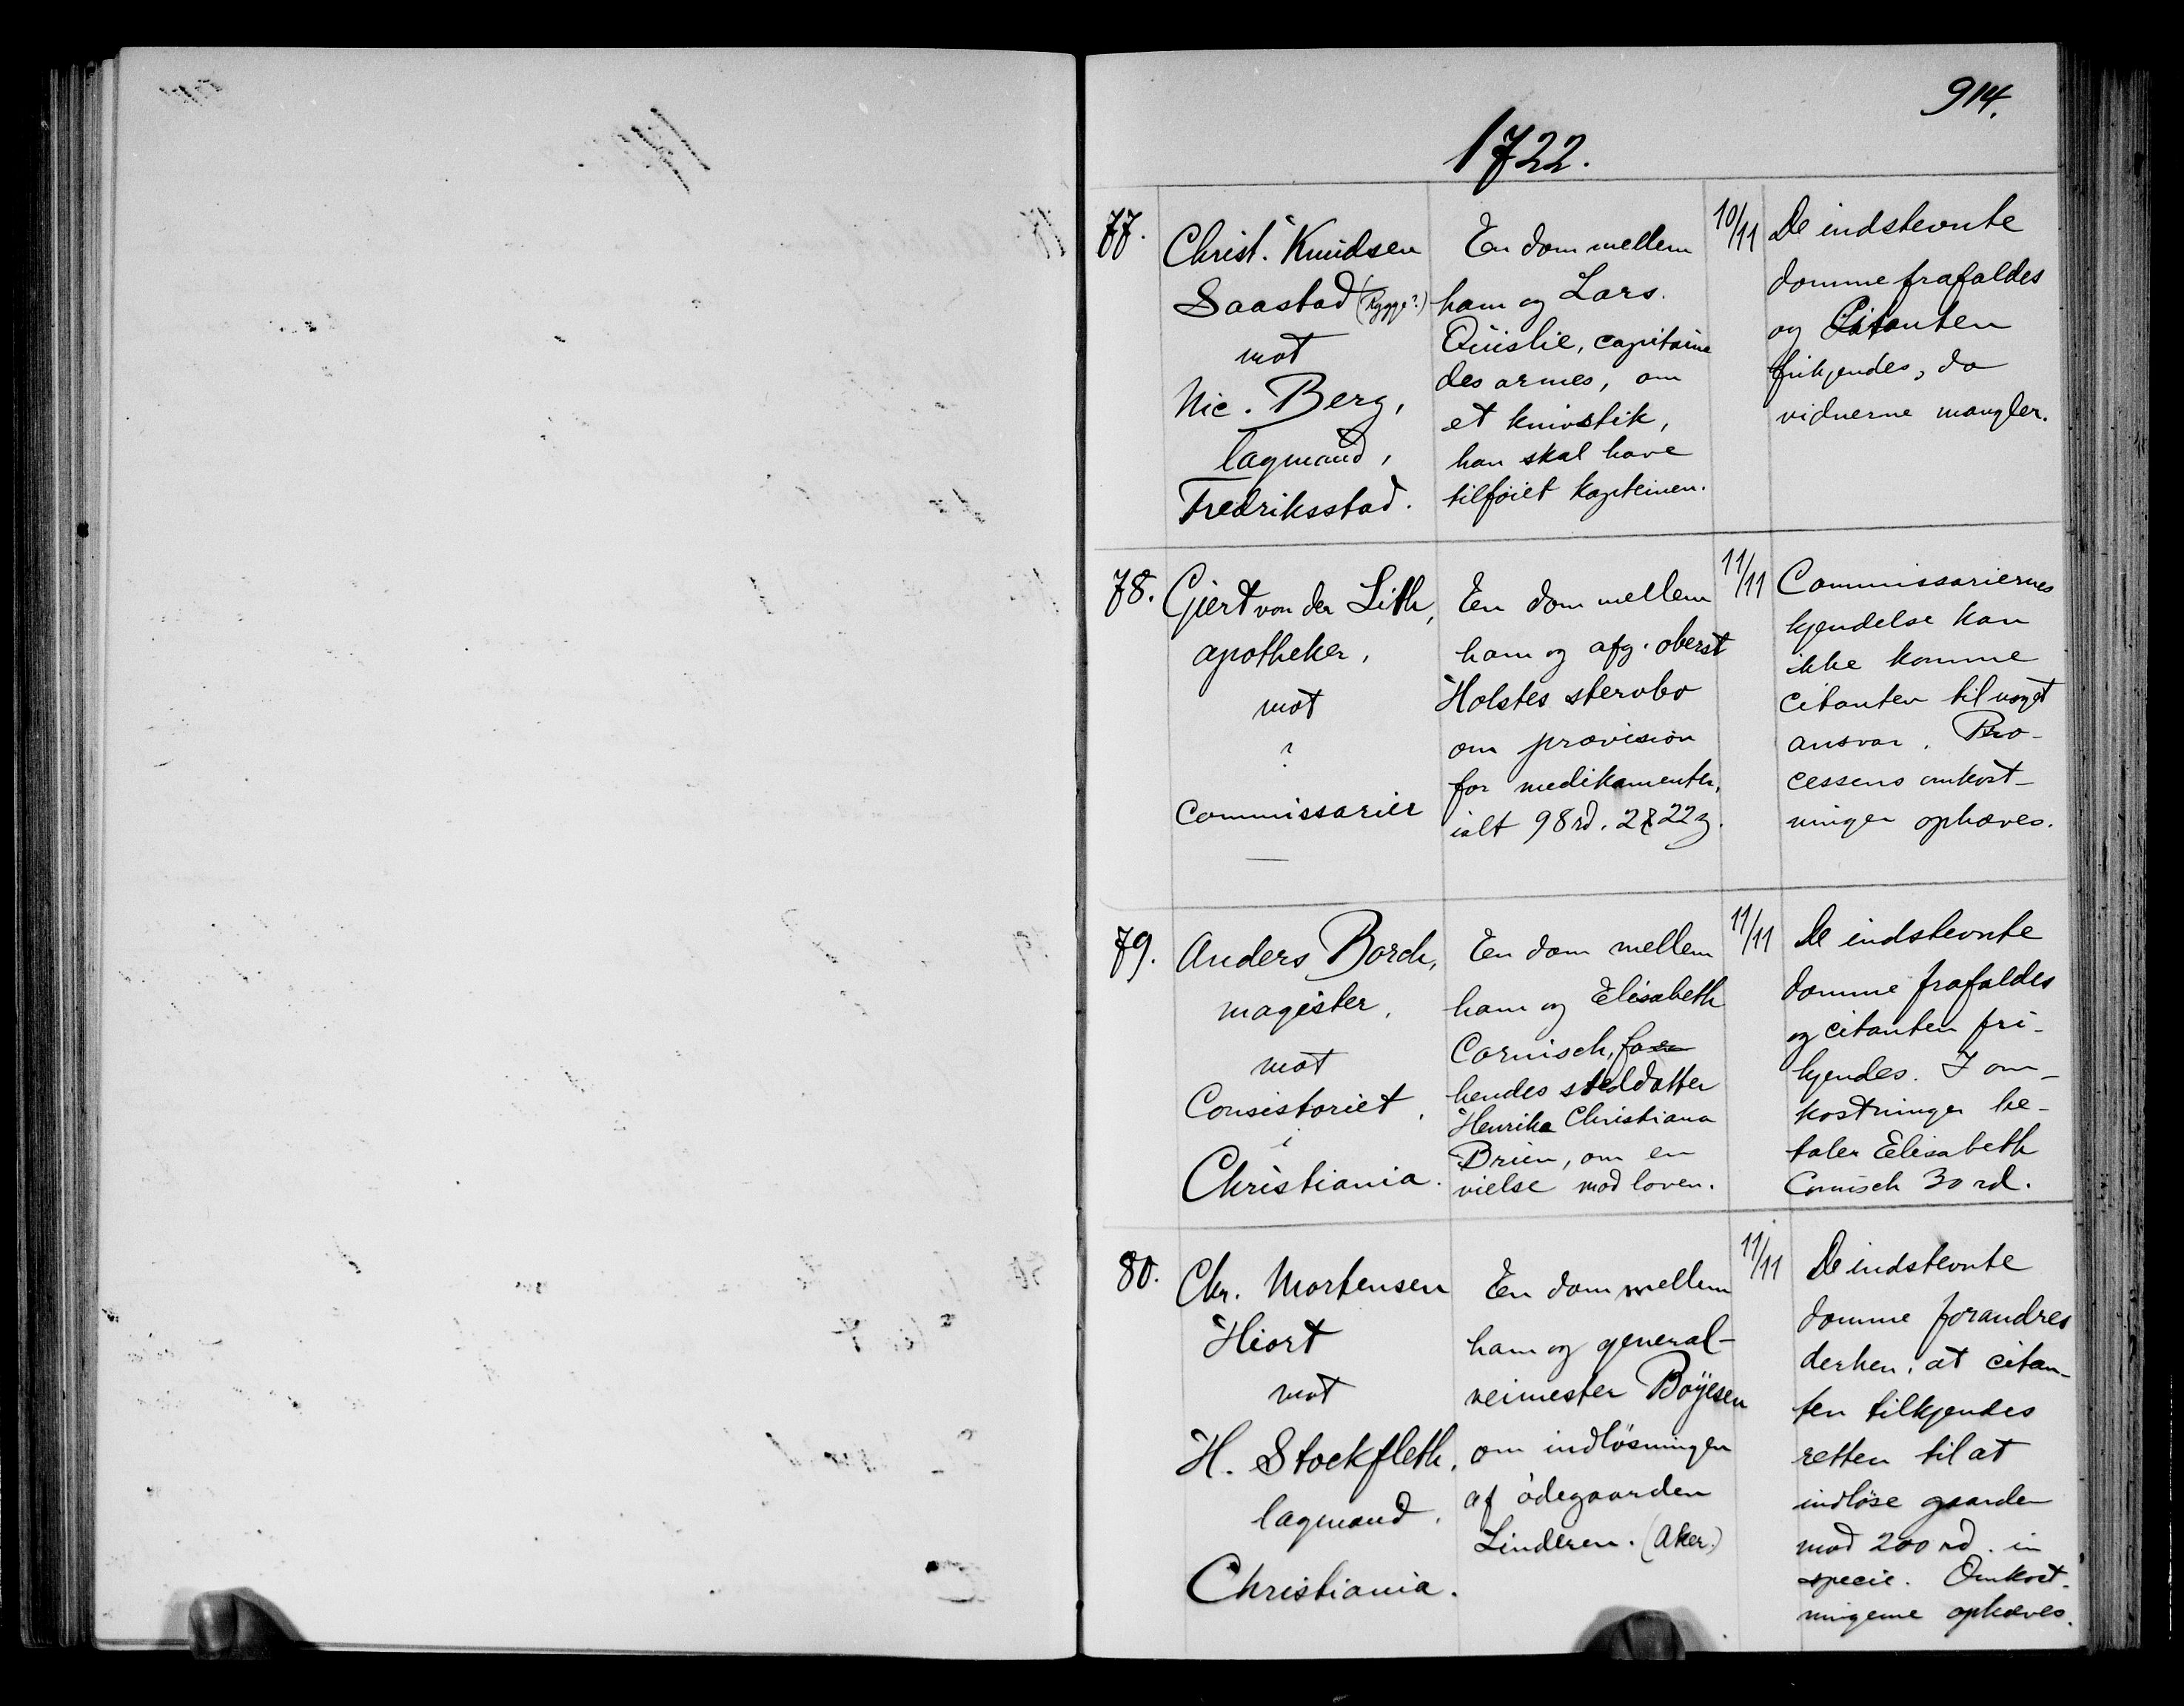 914.
1722.
77.
Christ. Knudsen
Saastad (Rygge?)
mot
Nic. Berg,
lagmand,
Fredriksstad.
En dom mellem
ham og Lars
Quislie, capitaine
des armes, om
et knivstik,
han skal have
tilføiet kapteinen.
10/11
De indstevnte
domme frafaldes
og Citanten
frikjendes, da
vidnerne mangler.
78.
Gjert von der Lith,
apotheker,
mot
?
Commissarier
En dom mellem
ham og afg. oberst
Holstes stervbo
om provision
for medikamenter,
ialt 98 rd. 2 22
11/11
Commissariernes
kjendelse kan
ikke komme
citanten til noget
ansvar. Pro-
cessens omkost-
ninger ophæves.
79.
Anders Borch,
magister,
mot
Consistoriet
i
Christiania.
En dom mellem
ham og Elisabeth
Cornisch,
hendes steddatter
Henrika Christiana
Brün, om en
vielse mod loven.
11/11
De indstevnte
domme frafaldes
og citanten fri-
kjendes. I om-
kostninger be-
taler Elisabeth
Cornisch 30 rd.
80.
Chr. Mortensen
Hiort
mot
H. Stockfleth,
lagmand.
Christiania.
En dom mellem
ham og general-
veimester Boÿesen
om indløsningen
af ödegaarden
Linderen. (Aker.)
11/11
De indstevnte
domme forandres
derhen, at citan-
ten tilkjendes
retten til at
indløse gaarden
mod 200 rd. in
specie. Omkost-
ningerne ophæves.